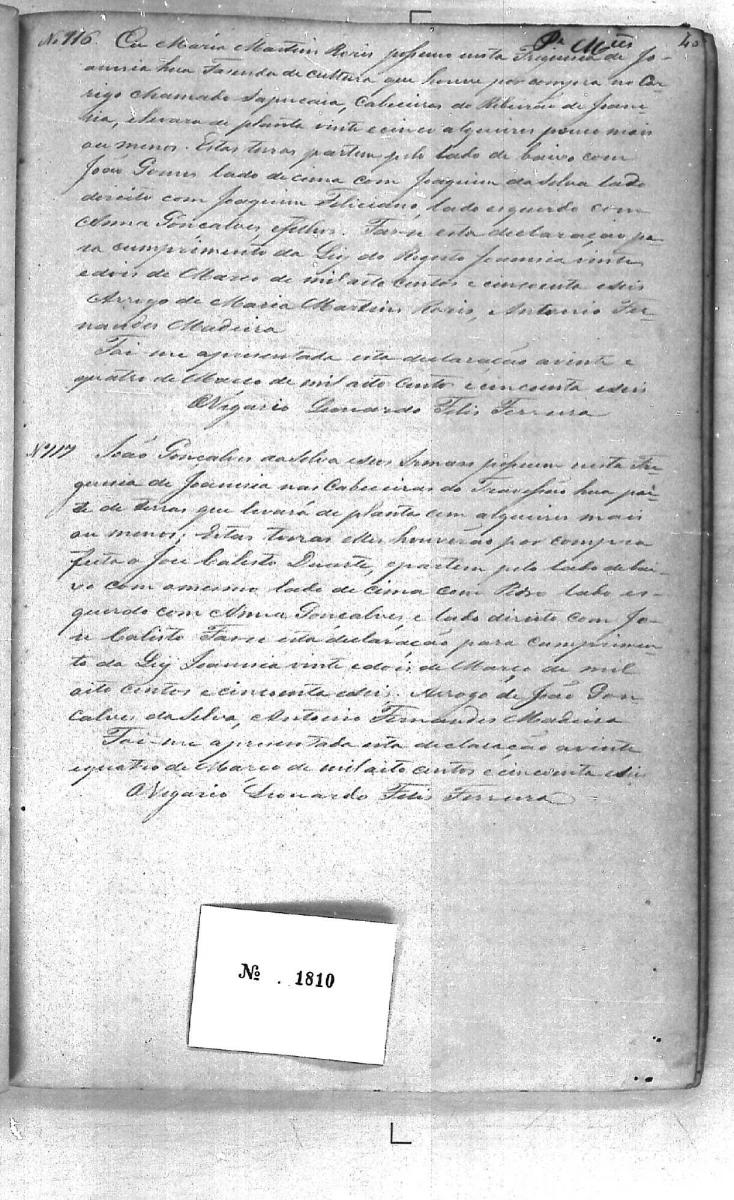 40
Nº 116 Eu Maria Martins Roris possuo nesta Freguesia de Jo-
annesia hua Fasenda de cultura que houve por compra no Cor-
rego chamado Sapucaia, Cabeceiras do Ribeirão de Joanne-
sia, e levara de planta vinte e cinco alqueires pouco mais
ou menos. Estas terras partem pelo lado de baixo com
João Gomes lado de cima com Joaquim da Silva lado
direito com Joaquim Feliciano, lado esquerdo com
Anna Gonçalves, e filhos. Fasse esta declaração pa-
ra cumprimento da Ley do Registo Joannesia vinte
e dois de Março de mil oito centos e cincoenta e seis
Arrogo de Maria Martins Roris, Antonio Fer-
nandes Madeira
Foi me apresentada esta declaração a vinte e
quatro de Março de mil oito cento e cincoenta e seis
O Vigario Leonardo Felis Ferreira
Nº 117 João Gonçalves da Silva e seus Irmaos possuem nesta Fre
guesia de Joannesia nas Cabeceiras do Travessão hua par-
te de terras que levará de planta cem alqueires mais
ou menos; Estas terras elles houverão por compra
feita a José Calisto Duarte, e partem pelo lado de bai-
xo com o mesmo lado de cima com Pedro lado es-
querdo com Anna Gonçalves, e lado direito com Jo-
se Calisto Fasse esta declaração para cumprimen-
to da Ley Joannesia vinte e dois de Março de mil
oito centos e cincoenta e seis. Arrogo de João Gon
calves da Silva, Antonio Fernandes Madeira
Foi-me apresentada esta declaração a vinte
e quatro de Março de mil oito centos e cincoenta e seis
O Vigario Leonardo Felis Ferreira
№ . 1810